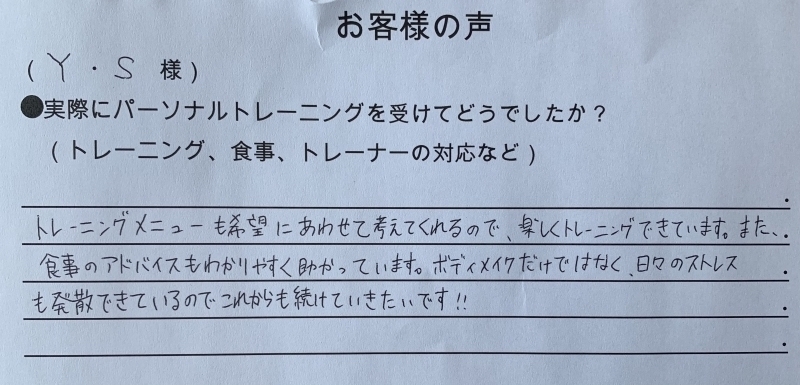 お客様の声
(Y・S 様)
●実際にパーソナルトレーニングを受けてどうでしたか?
(トレーニング、食事、トレーナーの対応など)
トレーニングメニューも希望にあわせて考えてくれるので、楽しくトレーニングできています。また、
食事のアドバイスもわかりやすく助かっています。ボディメイクだけではなく、日々のストレス
も発散できているのでこれからも続けていきたいです!!